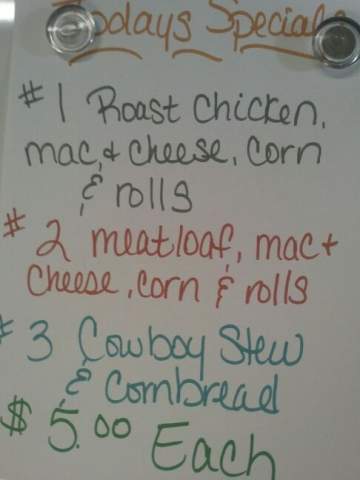 Todays Specials
#1 Roast Chicken,
mac & cheese, corn
& rolls
#2 meatloaf, mac +
cheese, corn & rolls
#3 Cowboy Stew
& Cornbread
$5.00 Each